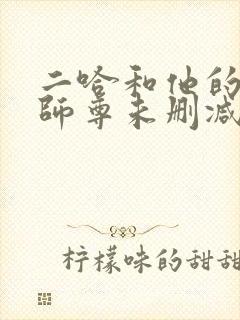 二哈和他的
师尊未删减
柠檬味的甜甜